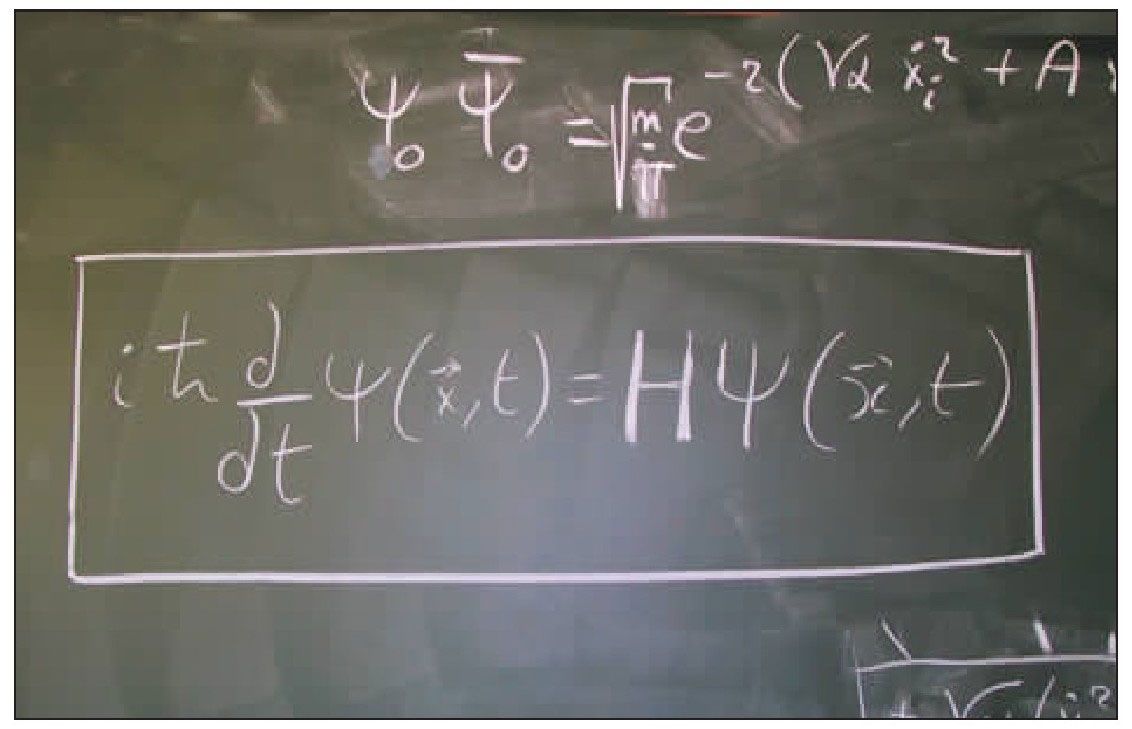 ψ₀ ψ̄₀ = √(m/π) e^-2(√α ẋᵢ² + A
iħ d/dt ψ(x⃗,t) = H ψ(x⃗,t)